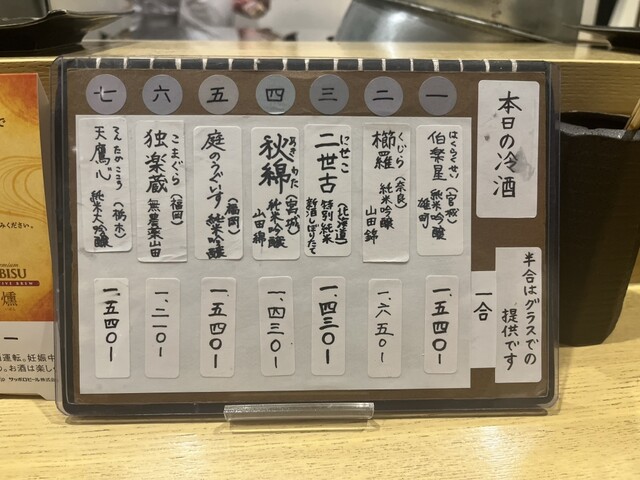 本日の冷酒
半合はグラスでの
提供です
一合
一
はくらくせい
伯楽星
(宮城)
純米吟醸
雄町
一、五四〇-
二
くじら
櫛羅
(奈良)
純米吟醸
山田錦
一、六五〇-
三
にせこ
二世古
(北海道)
特別純米
新酒しぼりたて
一、四三〇-
四
秋綿
(宮城)
純米吟醸
山田錦
一、四三〇-
五
庭のうぐいす
(福岡)
純米吟醸
一、五四〇-
六
こまぐら
独楽蔵
(福岡)
無農薬山田
一、二一〇-
七
てんたかこころ
天鷹心
(栃木)
純米大吟醸
一、五四〇-
BISU
燻
サッポロビール株式会社